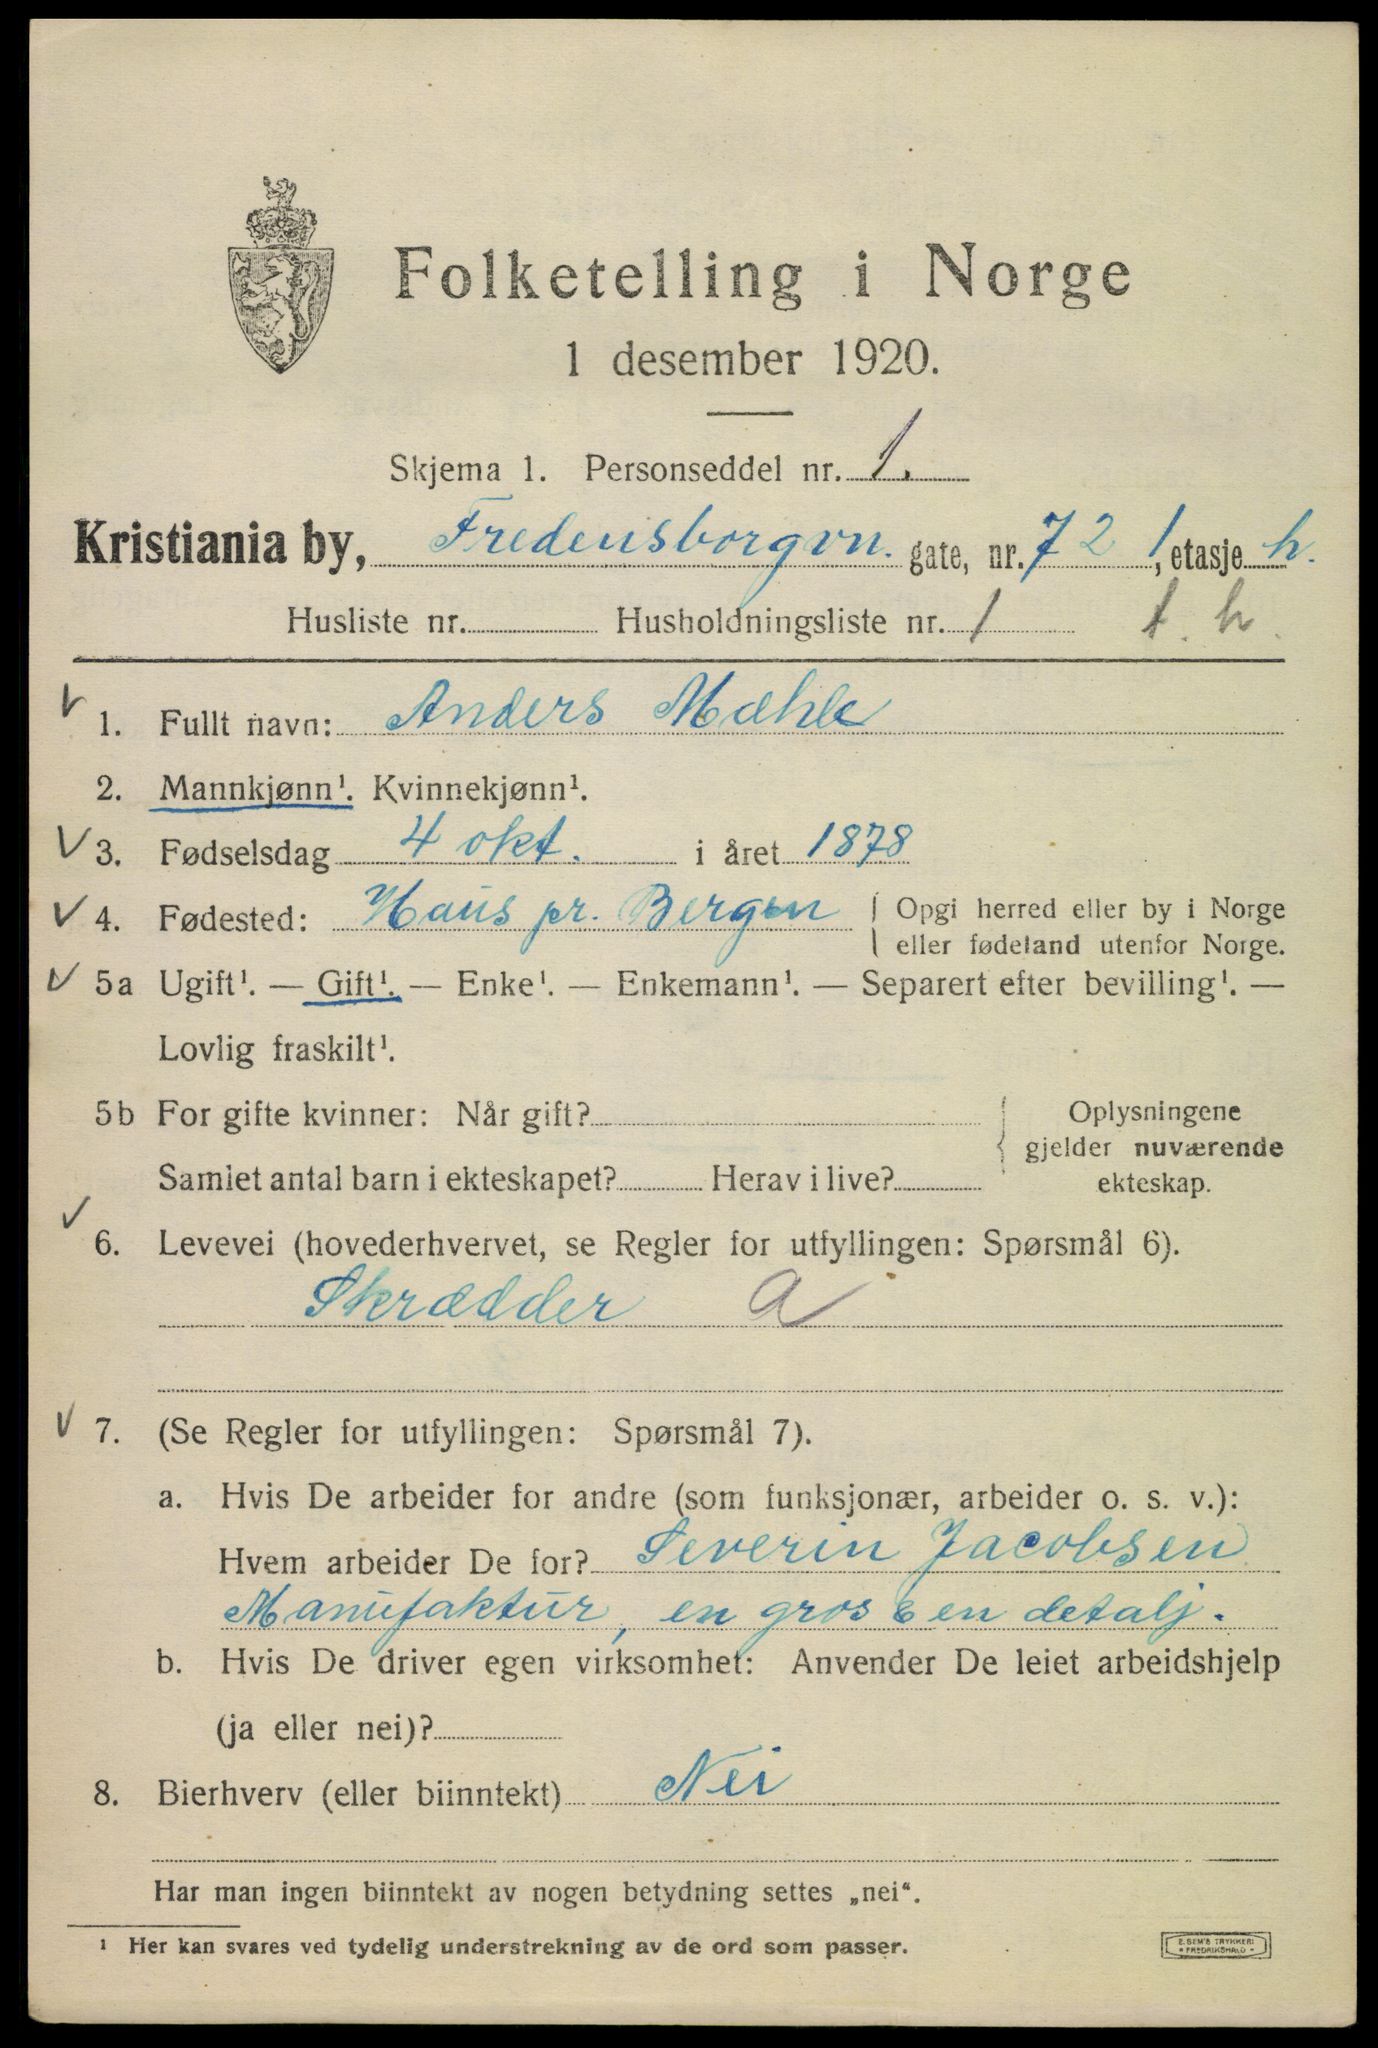 Folketelling i Norge
1 desember 1920.
Skjema 1. Personseddel nr. 1.
Kristiania by, Fredensborgvn. gate, nr. 72 1, etasje h.
Husliste nr. Husholdningsliste nr. 1 1. h.
1. Fullt navn: Anders Mæhle
2. Mannkjønn¹. Kvinnekjønn¹.
3. Fødselsdag 4 okt. i året 1878
4. Fødested: Haus pr. Bergen { Opgi herred eller by i Norge
eller fødeland utenfor Norge.
5a Ugift¹. — Gift¹. — Enke¹. — Enkemann¹. — Separert efter bevilling¹. —
Lovlig fraskilt¹.
5b For gifte kvinner: Når gift? Oplysningene
gjelder nuværende
Samlet antal barn i ekteskapet? Herav i live? ekteskap.
6. Levevei (hovederhvervet, se Regler for utfyllingen: Spørsmål 6).
Skrædder a
7. (Se Regler for utfyllingen: Spørsmål 7).
a. Hvis De arbeider for andre (som funksjonær, arbeider o. s. v.):
Hvem arbeider De for? Severin Jacobsen
Manufaktur, en gros & en detalj.
b. Hvis De driver egen virksomhet: Anvender De leiet arbeidshjelp
(ja eller nei)?
8. Bierhverv (eller biinntekt) Nei
Har man ingen biinntekt av nogen betydning settes „nei“.
¹ Her kan svares ved tydelig understrekning av de ord som passer.
E. SEM'S TRYKKERI
• FREDRIKSHALD •